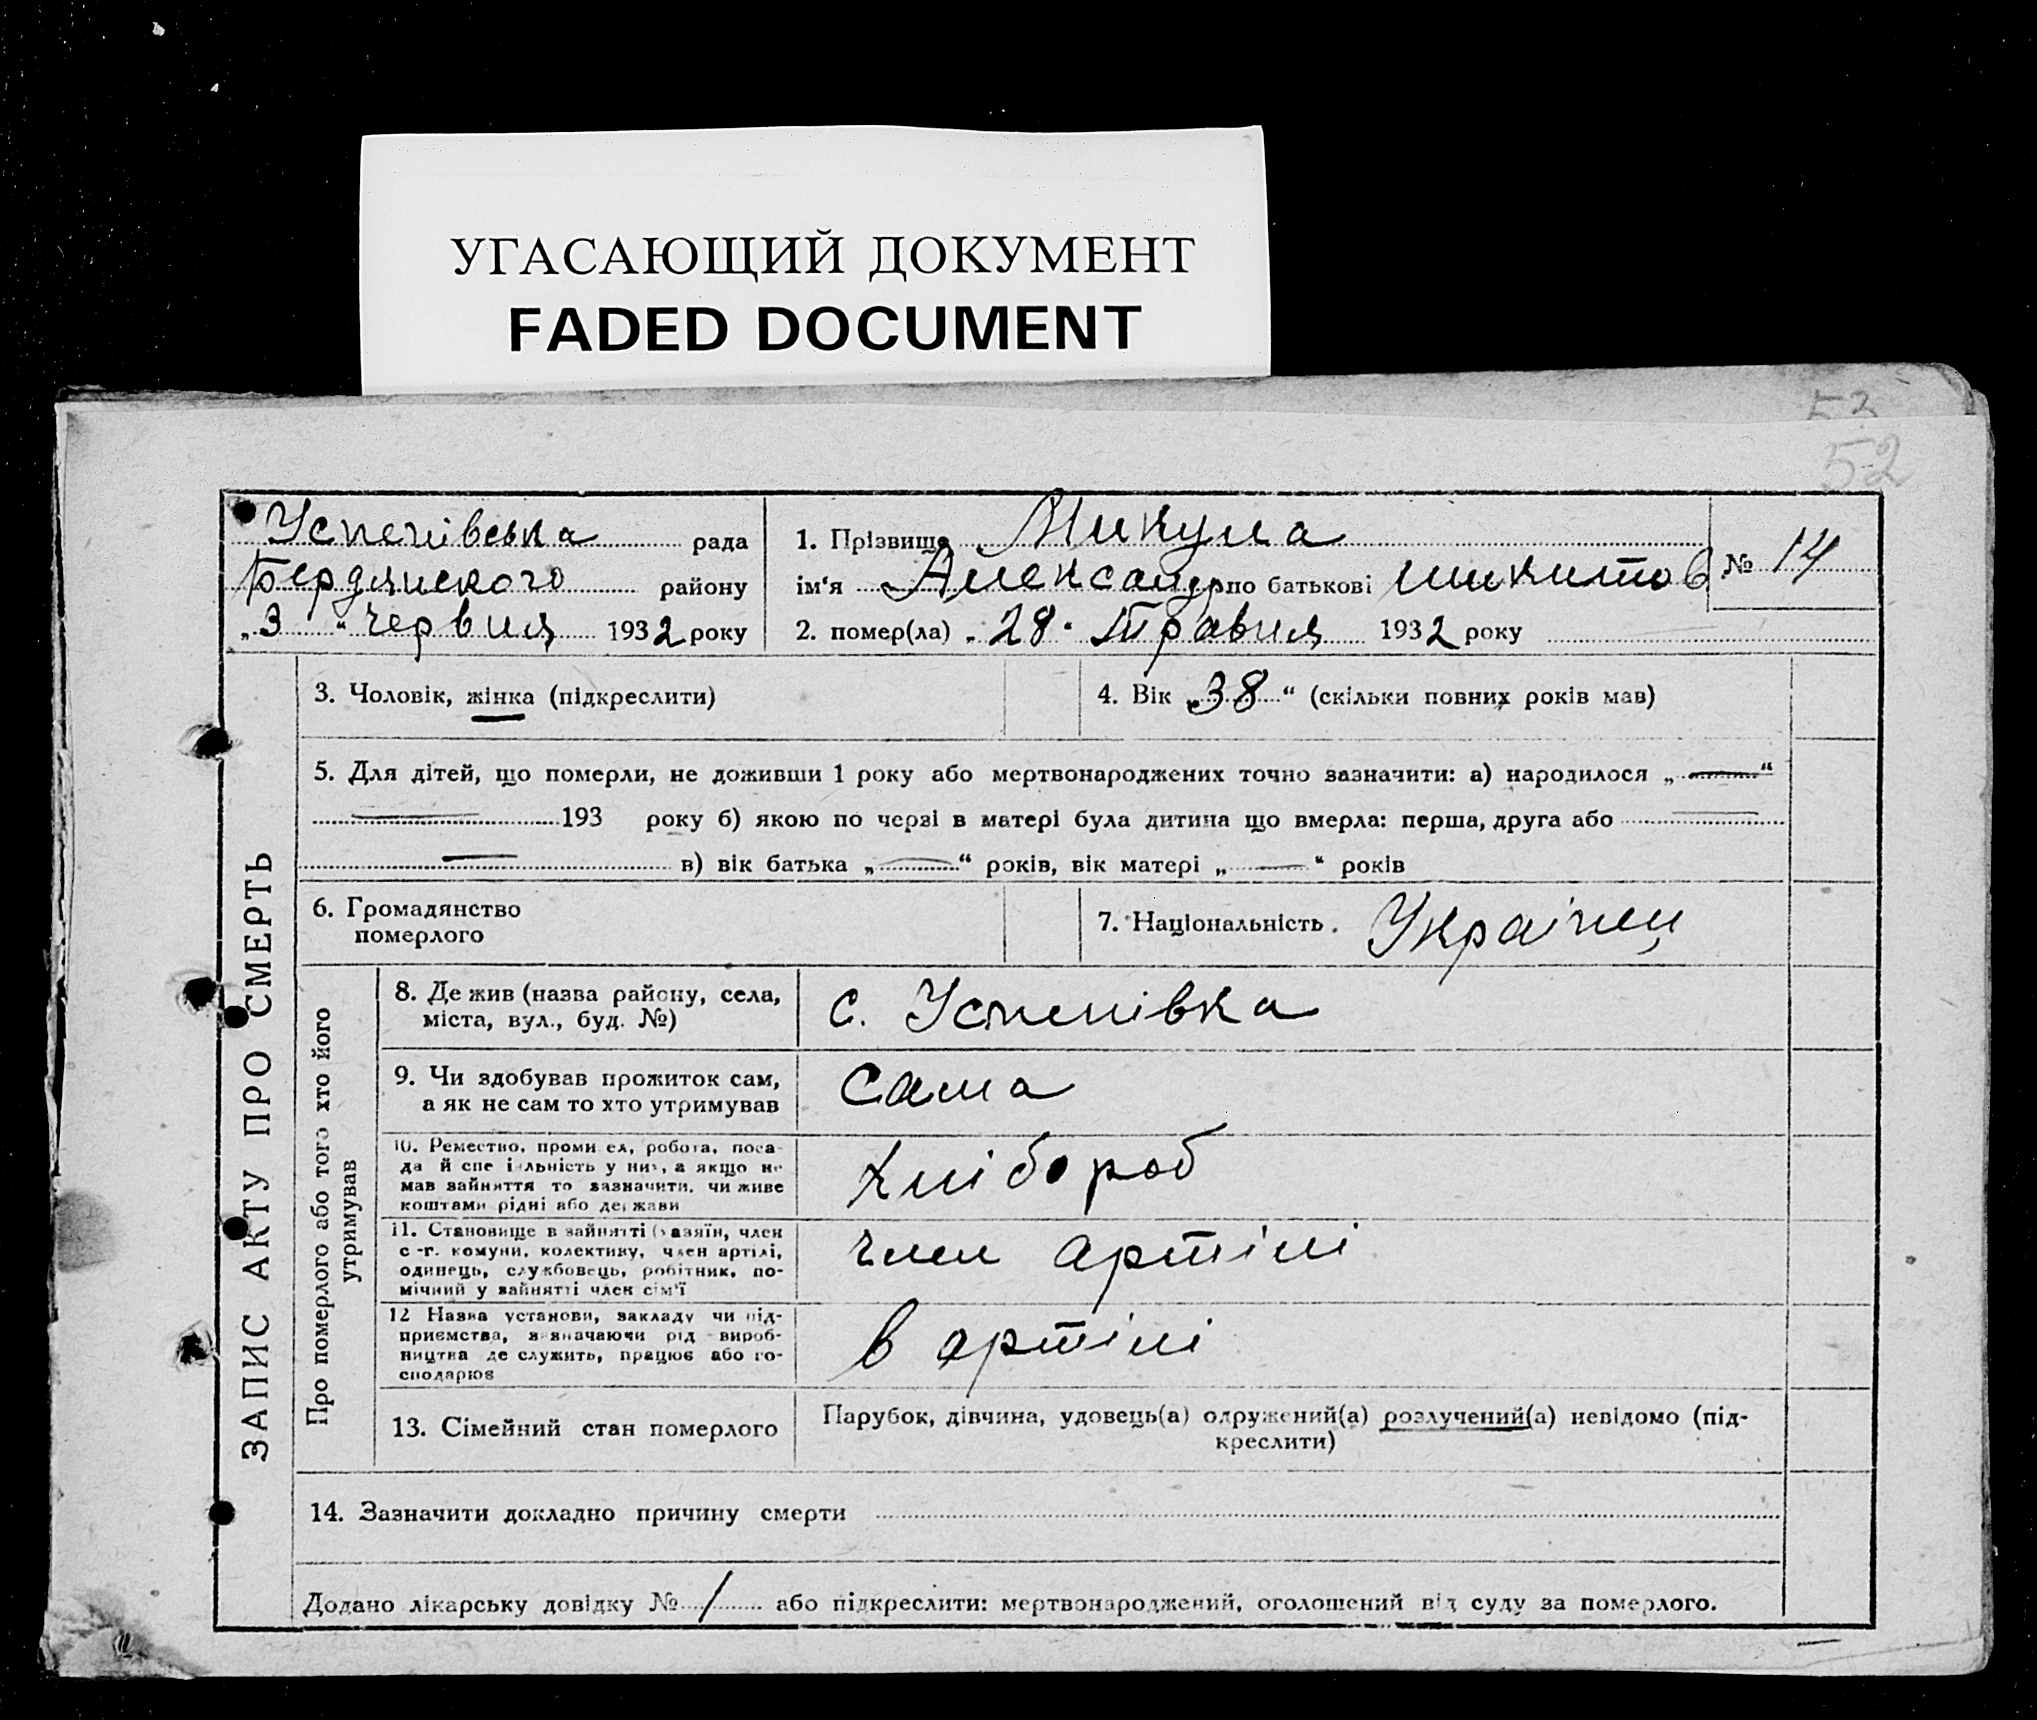 УГАСАЮЩИЙ ДОКУМЕНТ
FADED DOCUMENT
53
52
Успенівська рада
Бердянского району
„3“ червня 1932 року
1. Прізвище Микула
ім‘я Александр по батькові Микитов
2. помер(ла) „28“ Травня 1932 року
№ 14
ЗАПИС АКТУ ПРО СМЕРТЬ
3. Чоловік, жінка (підкреслити)
4. Вік „38“ (скільки повних років мав)
5. Для дітей, що померли, не доживши 1 року або мертвонароджених точно зазначити: а) народилося „—“
— 193 року б) якою по черзі в матері була дитина що вмерла: перша, друга або —
— в) вік батька „—“ років, вік матері „—“ років
6. Громадянство
померлого
7. Національність. Українец
Про померлого або того хто його
утримував
8. Де жив (назва району, села,
міста, вул., буд. №)
с. Успенівка
9. Чи здобував прожиток сам,
а як не сам то хто утримував
сама
10. Ремество, промисел, робота, поса-
да й спеціяльність у них, а якщо не
мав зайняття то зазначити, чи живе
коштами рідні або держави
хлібороб
11. Становище в зайнятті (хазяїн, член
с.-г. комуни, колективу, член артілі,
одинець, службовець, робітник, по-
мічний у зайнятті член сім‘ї
член артілі
12 Назва установи, закладу чи під-
приємства, зазначаючи рід вироб-
ництва де служить, працює або го-
сподарює
в артілі
13. Сімейний стан померлого
Парубок, дівчина, удовець(а) одружений(а) розлучений(а) невідомо (під-
креслити)
14. Зазначити докладно причину смерти
Додано лікарську довідку № / або підкреслити: мертвонароджений, оголошений від суду за померлого.